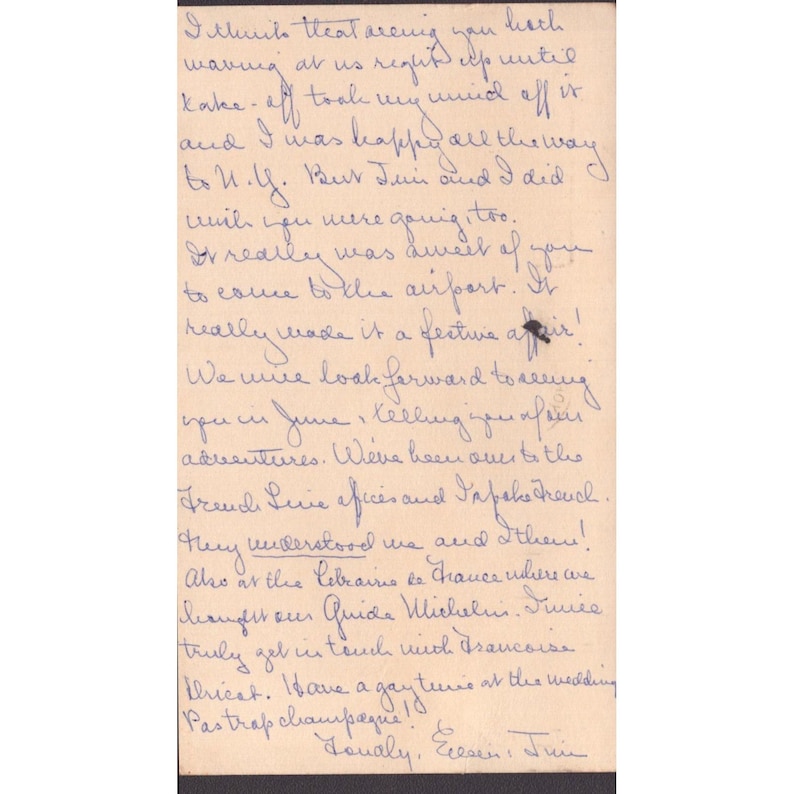 I think that seeing you both
waving at us right up until
take-off took my mind off it
and I was happy all the way
to N.Y. But Jim and I did
wish you were going, too.
It really was sweet of you
to come to the airport. It
really made it a festive affair!
We will look forward to seeing
you in June & telling you of our
adventures. We've been over to the
French Line offices and I spoke French.
They understood me and I them!
Also at the Librairie de France where we
bought our Guide Michelin. I will
truly get in touch with Francoise
Have a gay time at the wedding
Pas trop champagne!
Fondly, Eileen & Jim